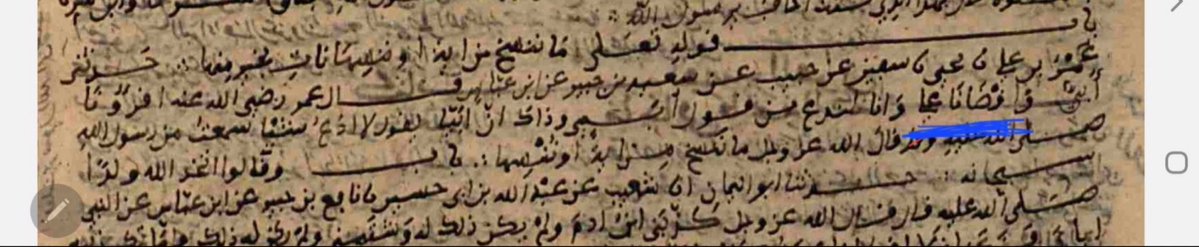 باب قوله تعلى ما ننسخ من اية او ننسها نات بخير منها ∴ حدثني
عمرو بن علي ن يحيى ن سفين عن حبيب عن سعيد بن جبير عن ابن عباس قال قال عمر رضي الله عنه اقرؤنا
أبي و اقضانا علي وانا لندع من قول أبي وذاك ان ابيا يقول لا ادع شيئا سمعت من رسول الله
صلى الله عليه وقد قال الله عز وجل ما ننسخ من اية او ننسها ∴ باب وقالوا اتخذ الله ولدا
سبحانه ∴ حدثنا ابو اليمان ان شعيب عن عبد الله بن ابي حسين نا نافع بن جبير عن ابن عباس عن النبي
صلى الله عليه قال قال الله عز وجل كذبني ابن ادم ولم يكن ذلك له وشتمني ولم يكن له ذلك فاما تكذيبه